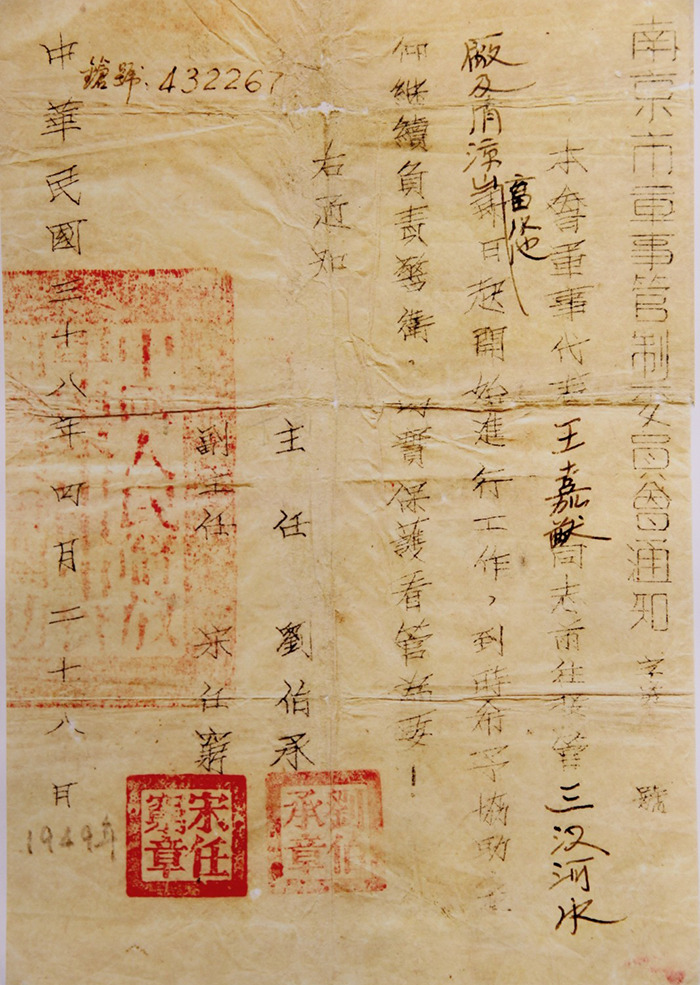 南京市軍事管制委員會通知 字第 號
本會軍事代表王嘉猷同志前往接管三汊河水
廠及清涼山蓄水池
即日起開始進行工作,到時希予協助並
仰繼續負責警衛,切實保護看管為要!
右通知
主任 劉伯承
副主任 宋任窮
鎗號:432267
中華民國三十八年四月二十八日
1949年
中國人民解放
劉伯承章
宋任窮章